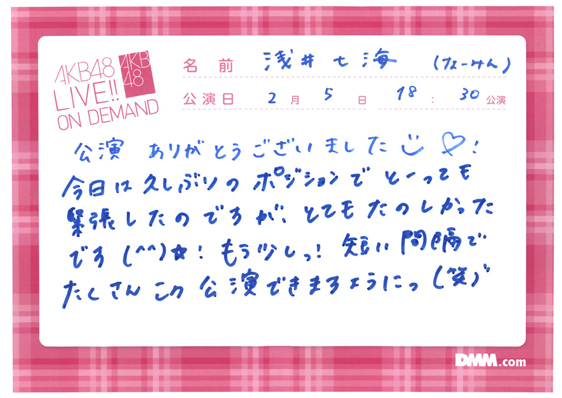 AKB48
LIVE!!
ON DEMAND
AKB
48
名前 浅井七海 (なーみん)
公演日 2月5日 18:30公演
公演 ありがとうございました♡!
今日は久しぶりのポジションで とーっても
緊張したのですが、とてもたのしかった
です (^^)☆! もう少しっ! 短い間隔で
たくさん この 公演できますようにっ (笑)
DMM.com